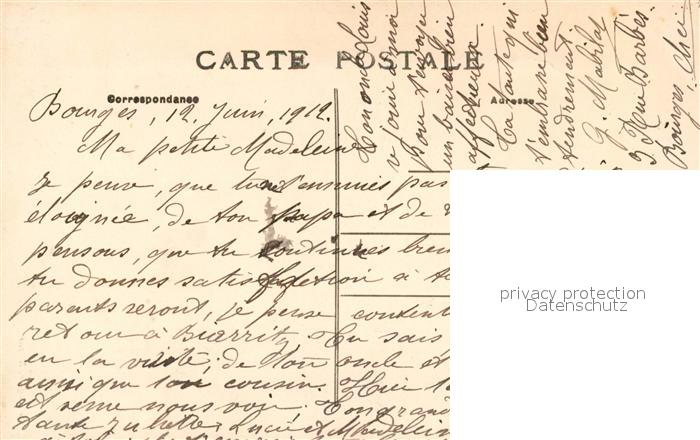 CARTE POSTALE
Correspondance
Adresse
Bourges, 12, Juin, 1912.
Ma petite Madeleine
Je pense, que tu ne t'ennuies pas
éloignée, de ton papa et de
pensons, que tu continues bien
tu donnes satisfaction à
parents seront, je pense content
retour à Biarritz, Tu sais
en la visite, de ton oncle et
ainsi que ton cousin. Hier
est venue nous voir,
tante Juliette Lucie et Madeleine
Ton oncle Louis
se joint à moi
pour t'envoyer
un baiser bien
affectueux.
Ta tante qui
t'embrasse bien
tendrement.
J. Mabilat
3 Rue Barbès.
Bourges. Cher
privacy protection
Datenschutz